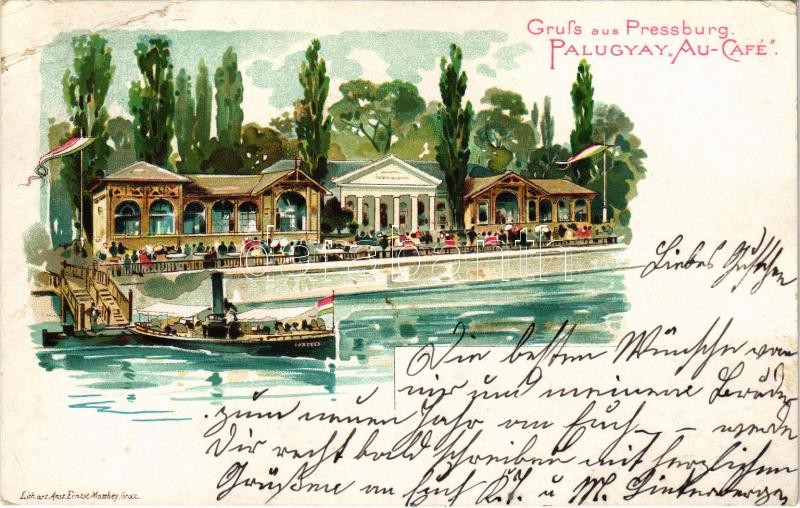 Gruſs aus Pressburg.
PALUGYAY „AU-CAFÉ“.
Liebes
Die besten Wünsche von
mir und meinem Bruder
zum neuen Jahr an Euch — werde
Dir recht bald schreiben mit herzlichen
Grüßen an Euch u. M.
Lith. art. Anst. Ernest Matthey, Graz.
darabanth